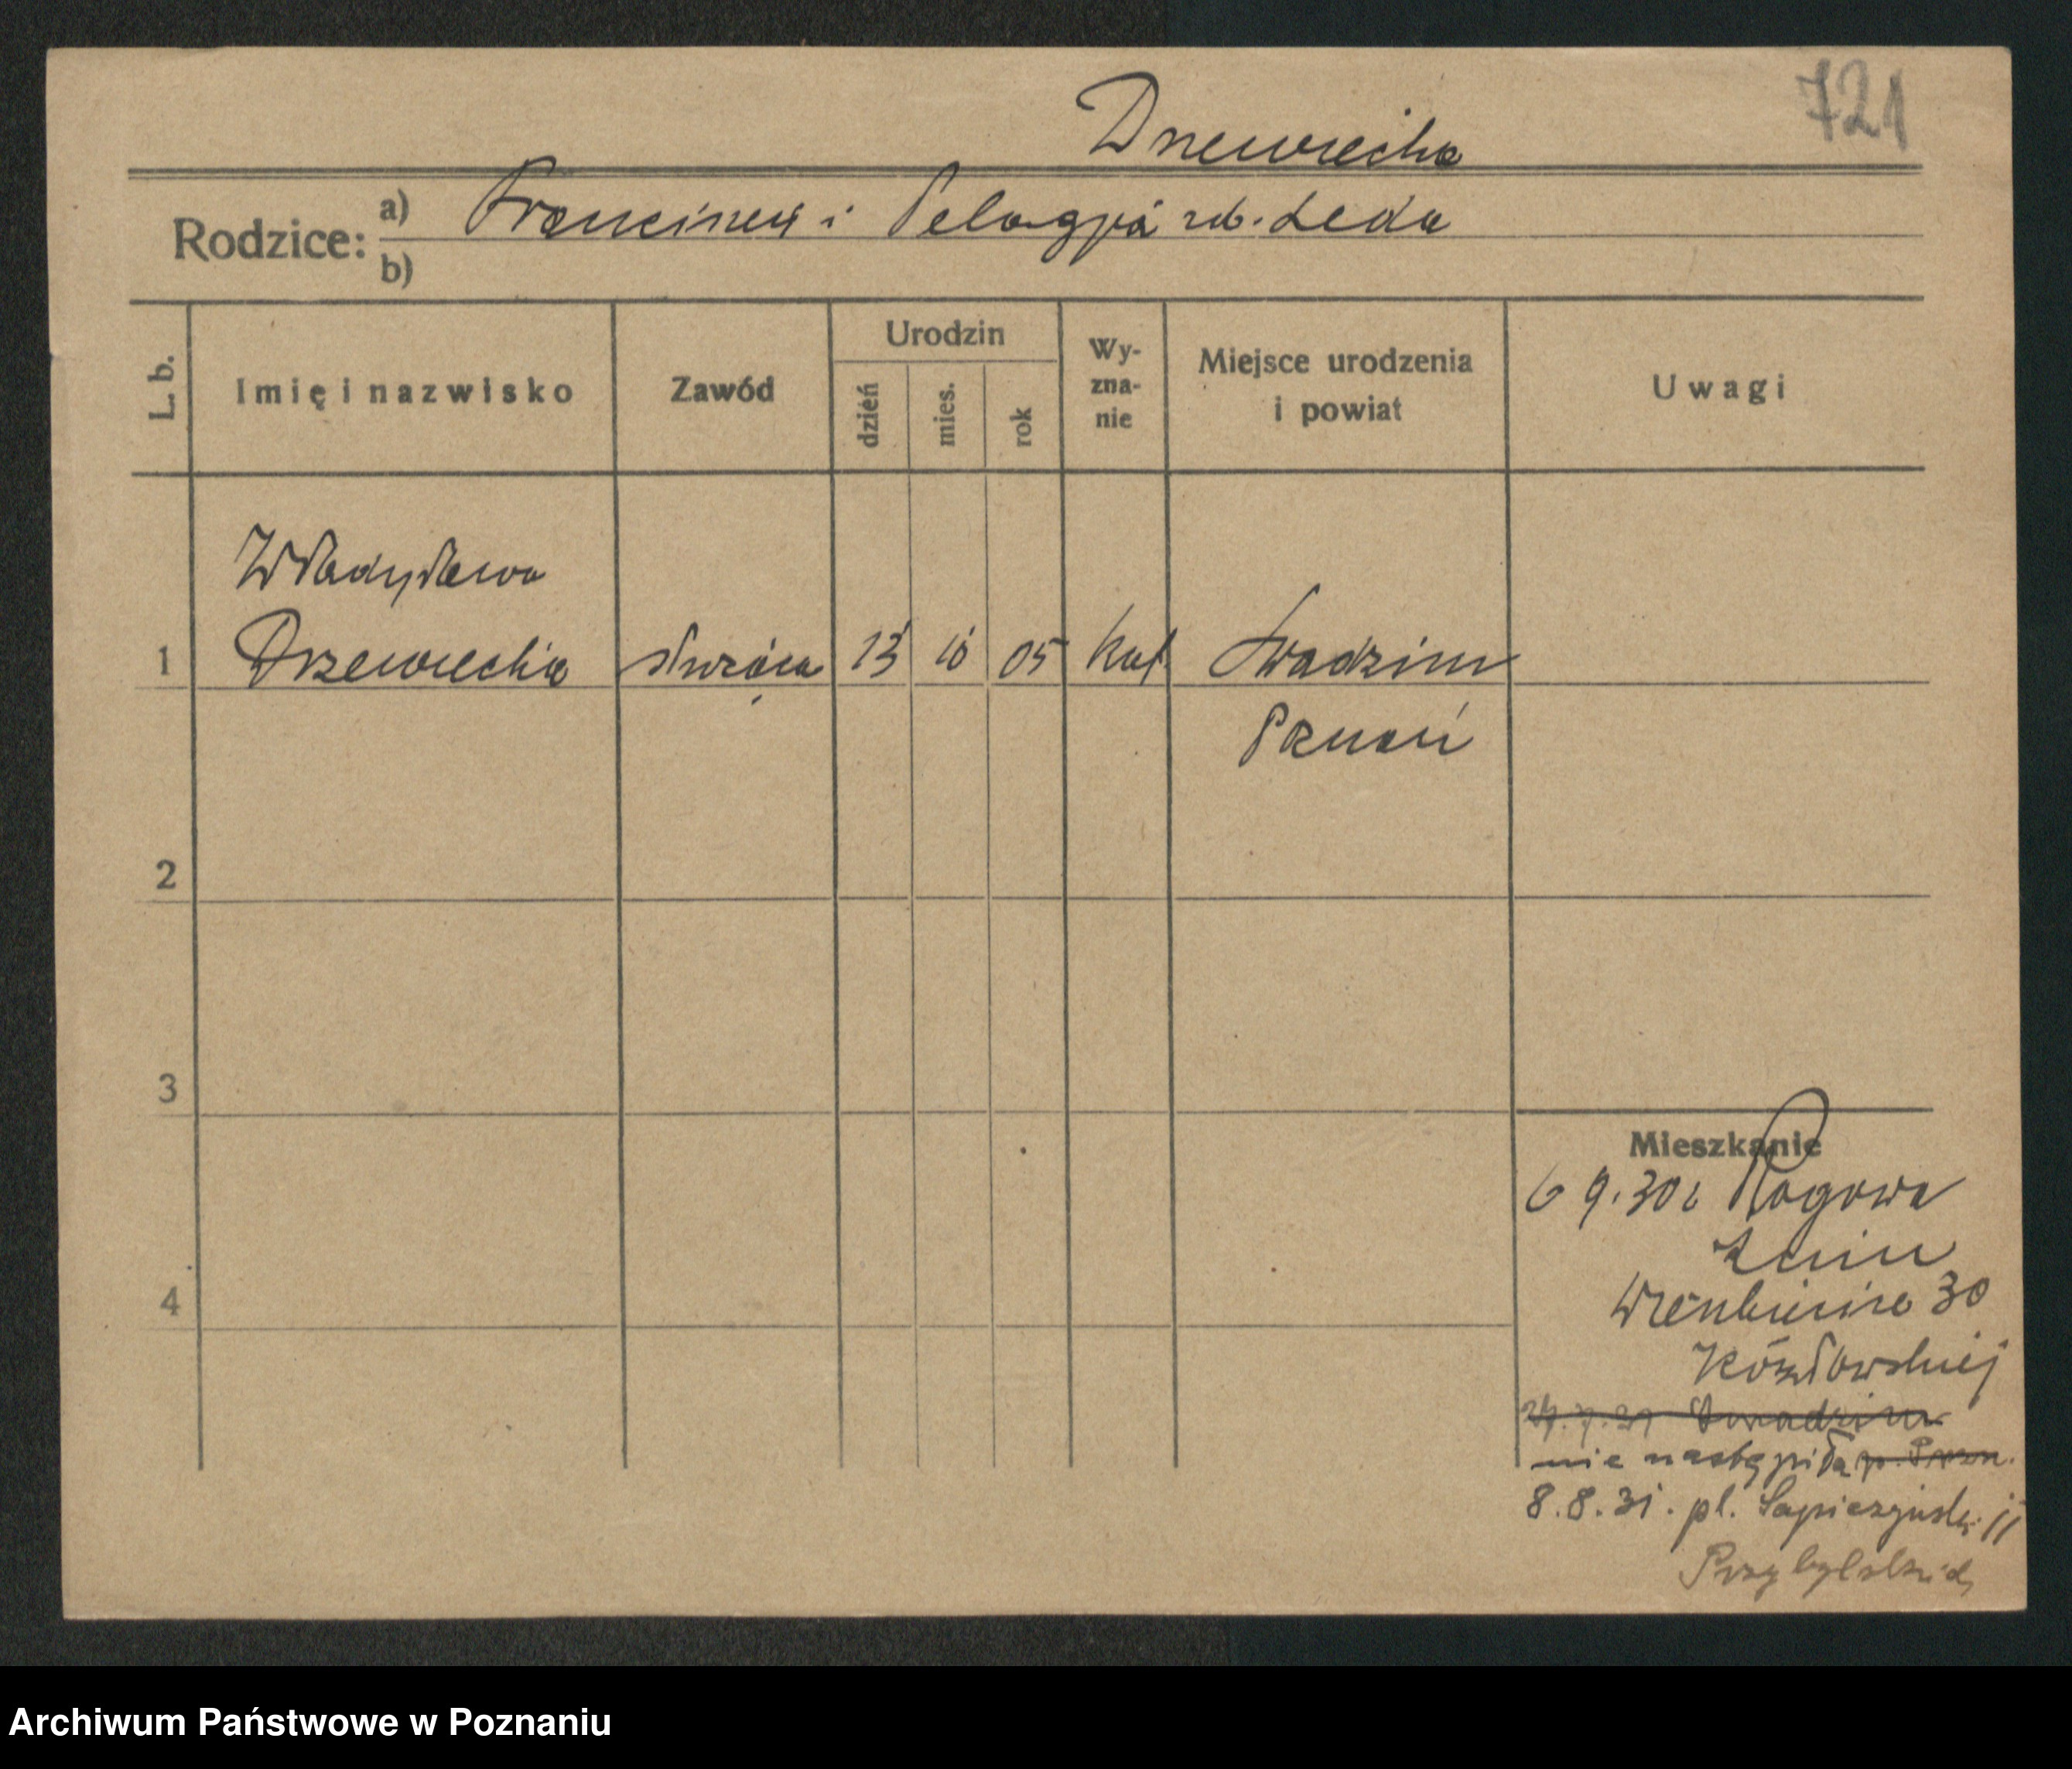 721
Drzewiecka
Rodzice: a) Franciszek i Pelagja zd. Leda
b)
L. b. Imię i nazwisko Zawód Urodzin dzień mies. rok Wy-zna-nie Miejsce urodzenia i powiat Uwagi
Władysława
1 Drzewiecka służąca 13 10 05 kat. Swadzim
Poznań
2
3
Mieszkanie
6 9.30 z Rogowa
Żnin
4 Wierzbięcice 30
Kozłowskiej
27.7.31 Swadzim
nie nastąpiła p. Pozn.
8.8.31. pl. Sapieżyński 11
Przybylskich
Archiwum Państwowe w Poznaniu